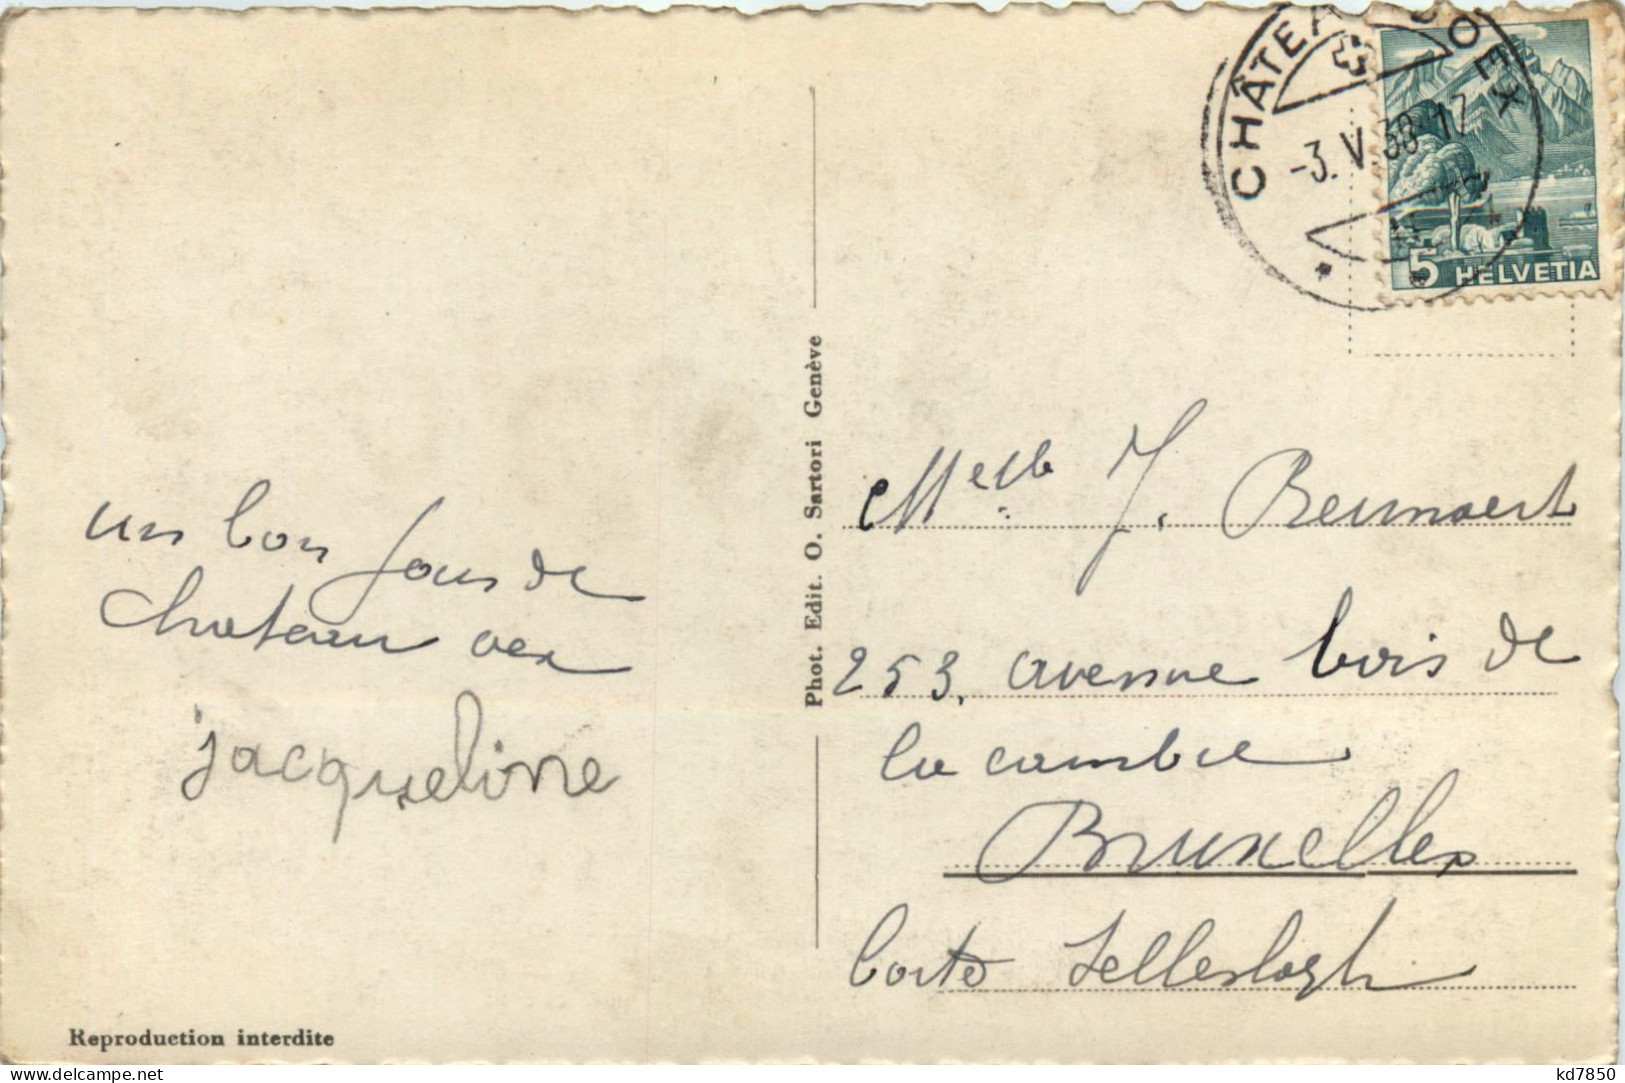 un bon jour de
chateau oex
jacqueline
Reproduction interdite
Phot. Edit. O. Sartori Genève
CHÂTEAU D'OEX
-3.V.38-17
5 HELVETIA
Melle J. Reumaert
253, avenue bois de
la cambre
Bruxelles
kd7850